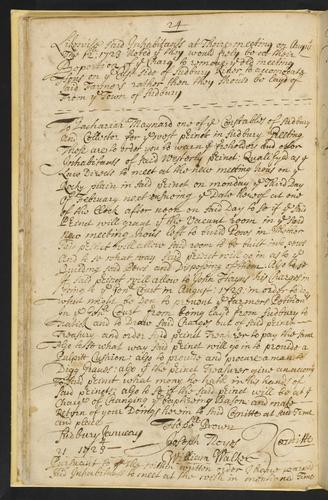 24
Likewise said Inhabitants at Their meeting on Augst
The 12 1723 Voted yt They would joly be at their
Proportion of ye Charg to remove ye old meeting
hous on ye East side of Sudbury River to accomodate
said Farmers rather then they should be layd of
From ye Town of Sudbury
To Zachariah Maynard one of ye Constables of Sudbury
and Collector for ye west precint in Sudbury Greeting
These are to order you to warn ye freholders and other
Inhabitants of said Westerly precint Qualifyd as ye
Law Directs to meet at the new meeting hous on ye
Rocky plain in said Precint on monday ye Third Day
of February next ensuing ye Date hereof at one
of the Clock after noon on said Day to se if ye said
Precint will grant ye Vacant room in ye said
New meeting hous left to build Pews in
said precint will allow said room to be built into pews
And in what way said precint will go in as to ye
Building said Pews and Disposing of them also to se
if said precint will allow to John Haynes his Charges in
going to ye Court in August 1723 in order to do
what might be Don to prevent ye Farmers Petition
in ye Court from being layd from Sudbury to
and to Draw said Charges out of said precint
Treasury and order said Precint Treasurer to pay the same
Also as to what way said Precint will go in to provide a
Pulpit Cushion also to provide and procure a man to
Digg Graves also if the precint Treasurer give account
to said Precint what mony he hath in his hands of
said precints also to se if the said precint will be at ye
Charge of Changing ye baptizers Bason and make
Return of your Doings herein to said Comitte at said Time
and place
Sudbury January
21 1723
Joseph Brown
Joseph Noyes
William Walker
Comitte
Pursuant to ye within written order I have warned
said Inhabitants to meet at the with in mentioned Time